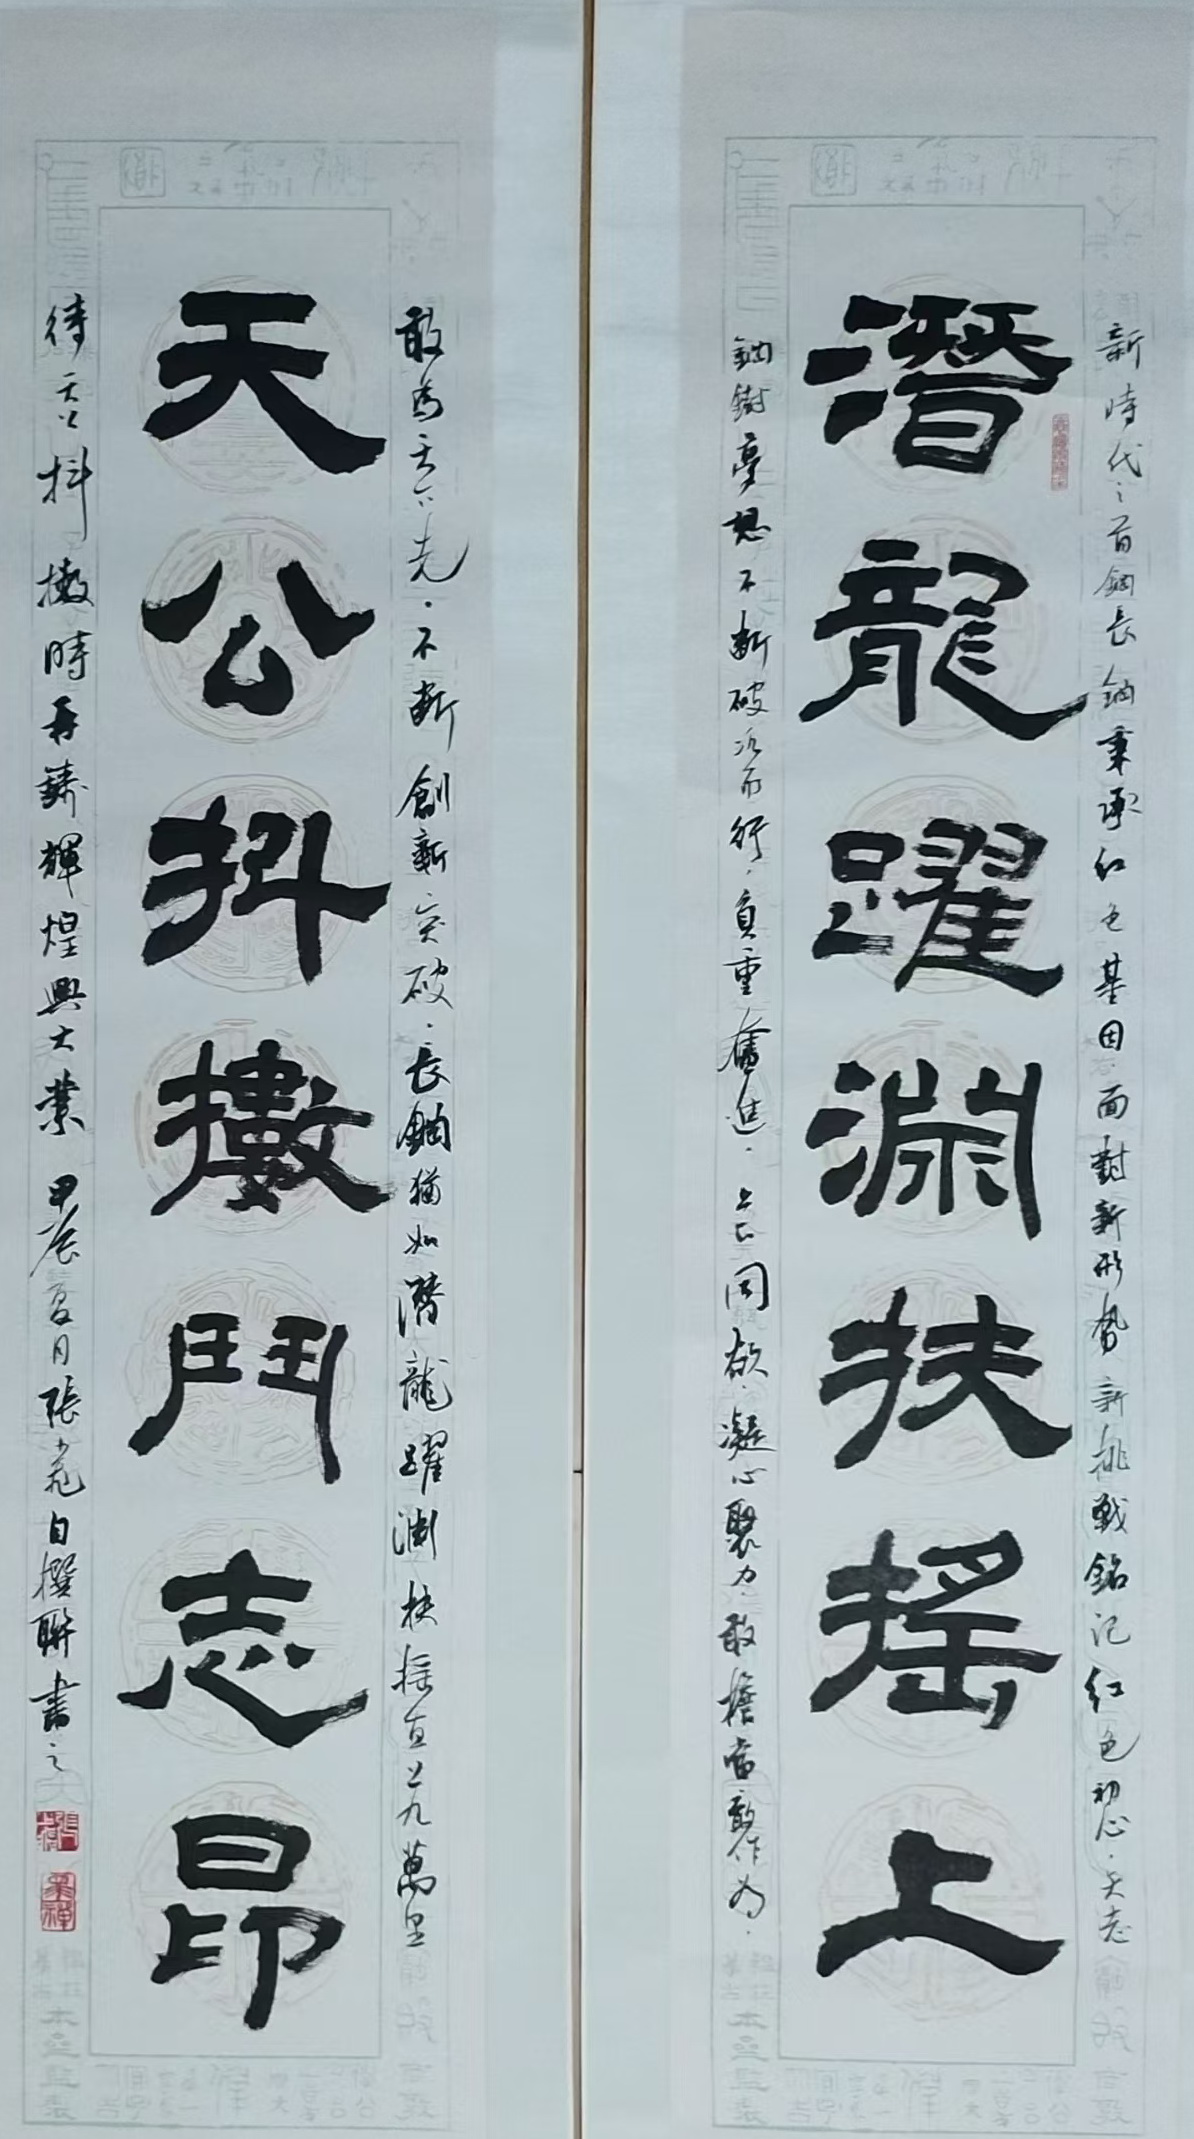 新時代之首鋼長鋼秉承紅色基因面對新形勢新挑戰銘記紅色初心.矢志
潛龍躍淵扶搖上
鋼鐵夢想不斷破浪前行.負重奮進.上下同欲.凝心聚力.敢擔當敢作為.
敢為天下先.不斷創新突破.長鋼猶如潛龍躍淵扶搖直上九萬里
天公抖擻鬥志昂
待天公抖擻時再鑄輝煌興大業 甲辰夏月張 自撰聯書之